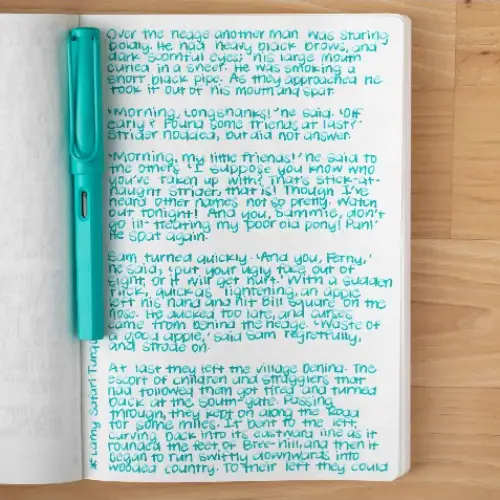 Over the hedge another man was staring
boldly. He had heavy black brows, and
dark scornful eyes; his large mouth
curled in a sneer. He was smoking a
short black pipe. As they approached he
took it out of his mouth and spat.
'Morning, Longshanks!' he said. 'Off
early? Found some friends at last?'
Strider nodded, but did not answer.
'Morning, my little friends!' he said to
the others. 'I suppose you know who
you've taken up with? That's Stick-at-
naught Strider, that is! Though I've
heard other names not so pretty. Watch
out tonight! And you, Sammie, don't
go ill-treating my poor old pony! Pah!'
He spat again.
Sam turned quickly. 'And you, Ferny,'
he said, 'put your ugly face out of
sight, or it will get hurt.' With a sudden
flick, quick as lightening, an apple
left his hand and hit Bill square on the
nose. He ducked too late, and curses
came from behind the hedge. 'Waste of
a good apple,' said Sam regretfully,
and strode on.
At last they left the village behind. The
escort of children and stragglers that
had followed them got tired and turned
back at the South-gate. Passing
through, they kept on along the Road
for some miles. It bent to the left,
curving back into its eastward line as it
rounded the feet of Bree-hill, and then it
began to run swiftly downwards into
wooded country. To their left they could
* Lamy Safari Turq